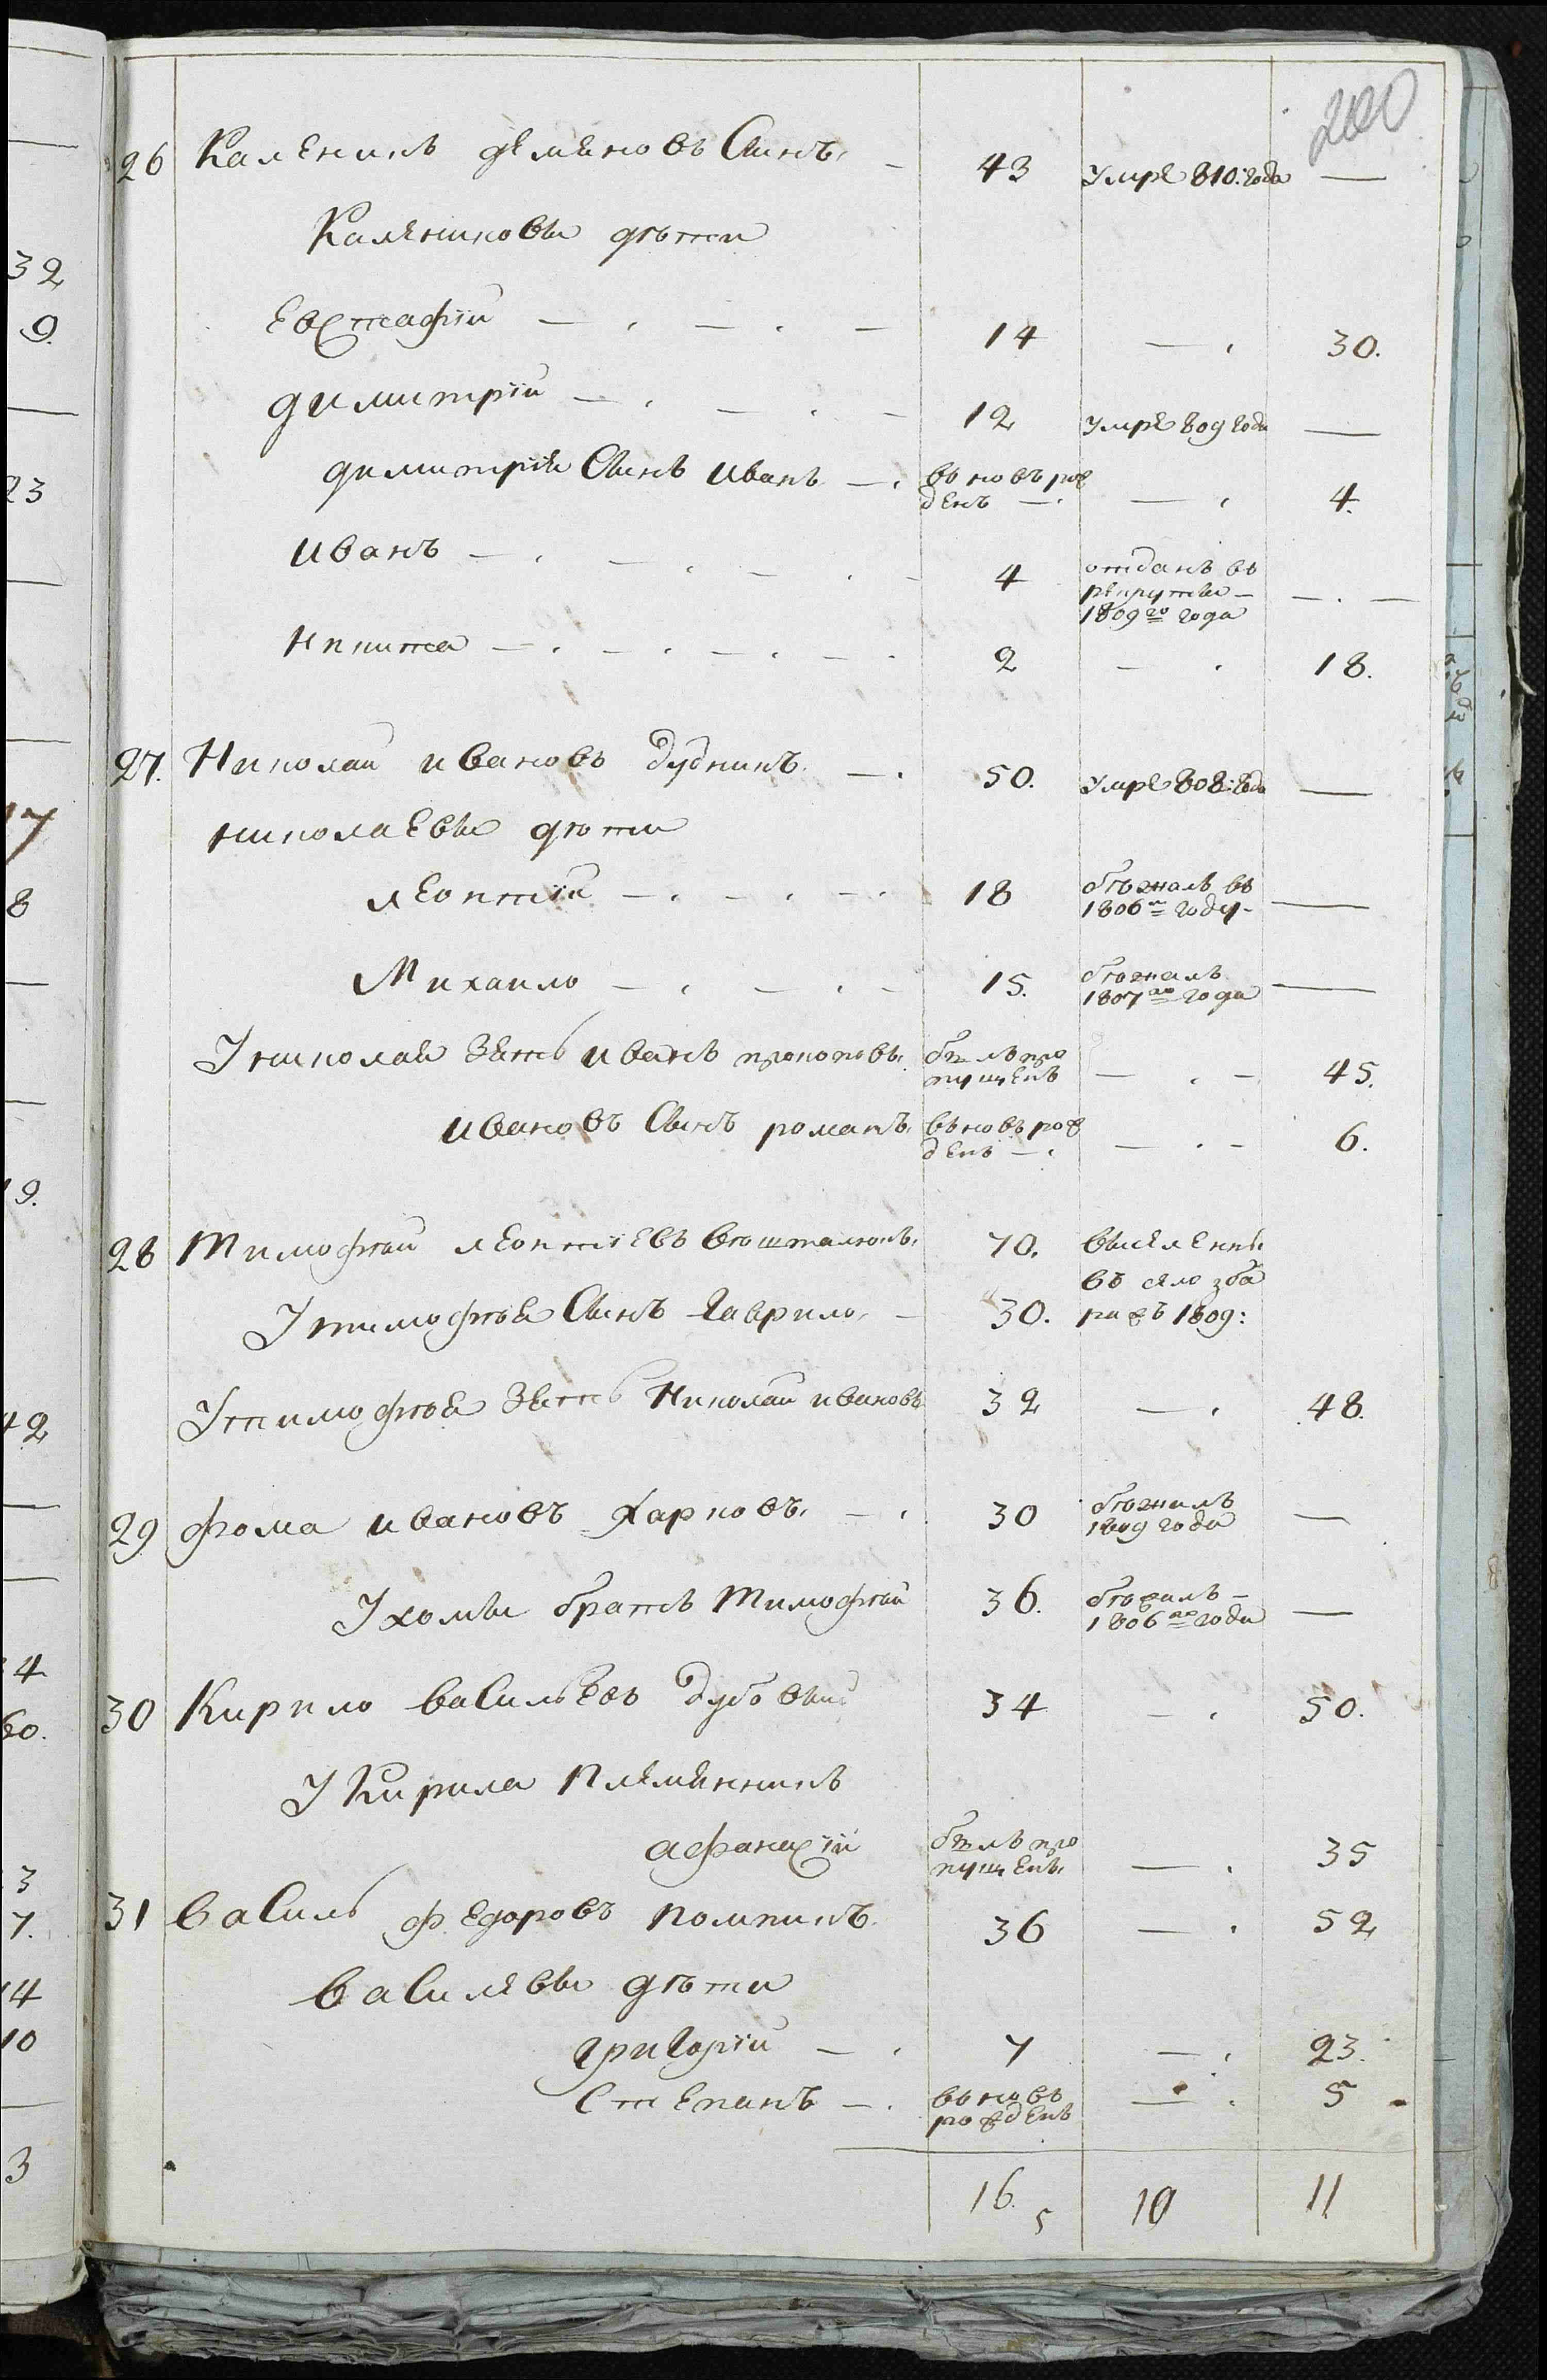 200
26 Каленикъ демяновъ Сынъ. — 43 Умре 810: года —
Калениковы дѣти
Евстафіи — . — . — 14 — . 30.
димитріи — . — . — 12 умре 809 года —
димитрія Сынъ иванъ — . вьновь рож
денъ — . — . 4.
иванъ — . — . — . — 4 отданъ въ
рекруты —
1809го года — . —
Никита — . — . — . — . 2 — . 18.
27. Николаи ивановъ дудникъ. — . 50. Умре 808: года —
николаевы дѣти
леонтіи — . — . — . 18 бѣжалъ въ
1806м году. —
Михаило — . — . — 15. бѣжалъ
1807го года —
У николая зять иванъ прокоповъ. былъ про
пущенъ — . — 45.
ивановъ Сынъ романъ. вьновь рож
денъ — . — . — 6.
28 Тимофѣи леонтіевъ 70. выселенны
въ село зба
У тимофѣя Сынъ Гаврило. — 30. ражъ 1809:
У тимофѣя зять Николаи ивановъ 32 — . 48.
29 фома ивановъ Харковъ. — . 30 бѣжалъ
1809 года —
У хомы братъ Тимофѣи 36. бѣжалъ —
1806го года —
30 Кирило васильевъ дубовыи 34 — . 50.
У Кирила племянникъ
афанасіи былъ про
пущенъ. — . 35
31 василь федоровъ 36 — . 52
василевы дѣти
григоріи — . 7 — . 23.
Степанъ — . вьновь
рожденъ — . 5
16. 5 10 11
32
9.
23
17
8
19.
42
4
60.
3
7.
14
10
3